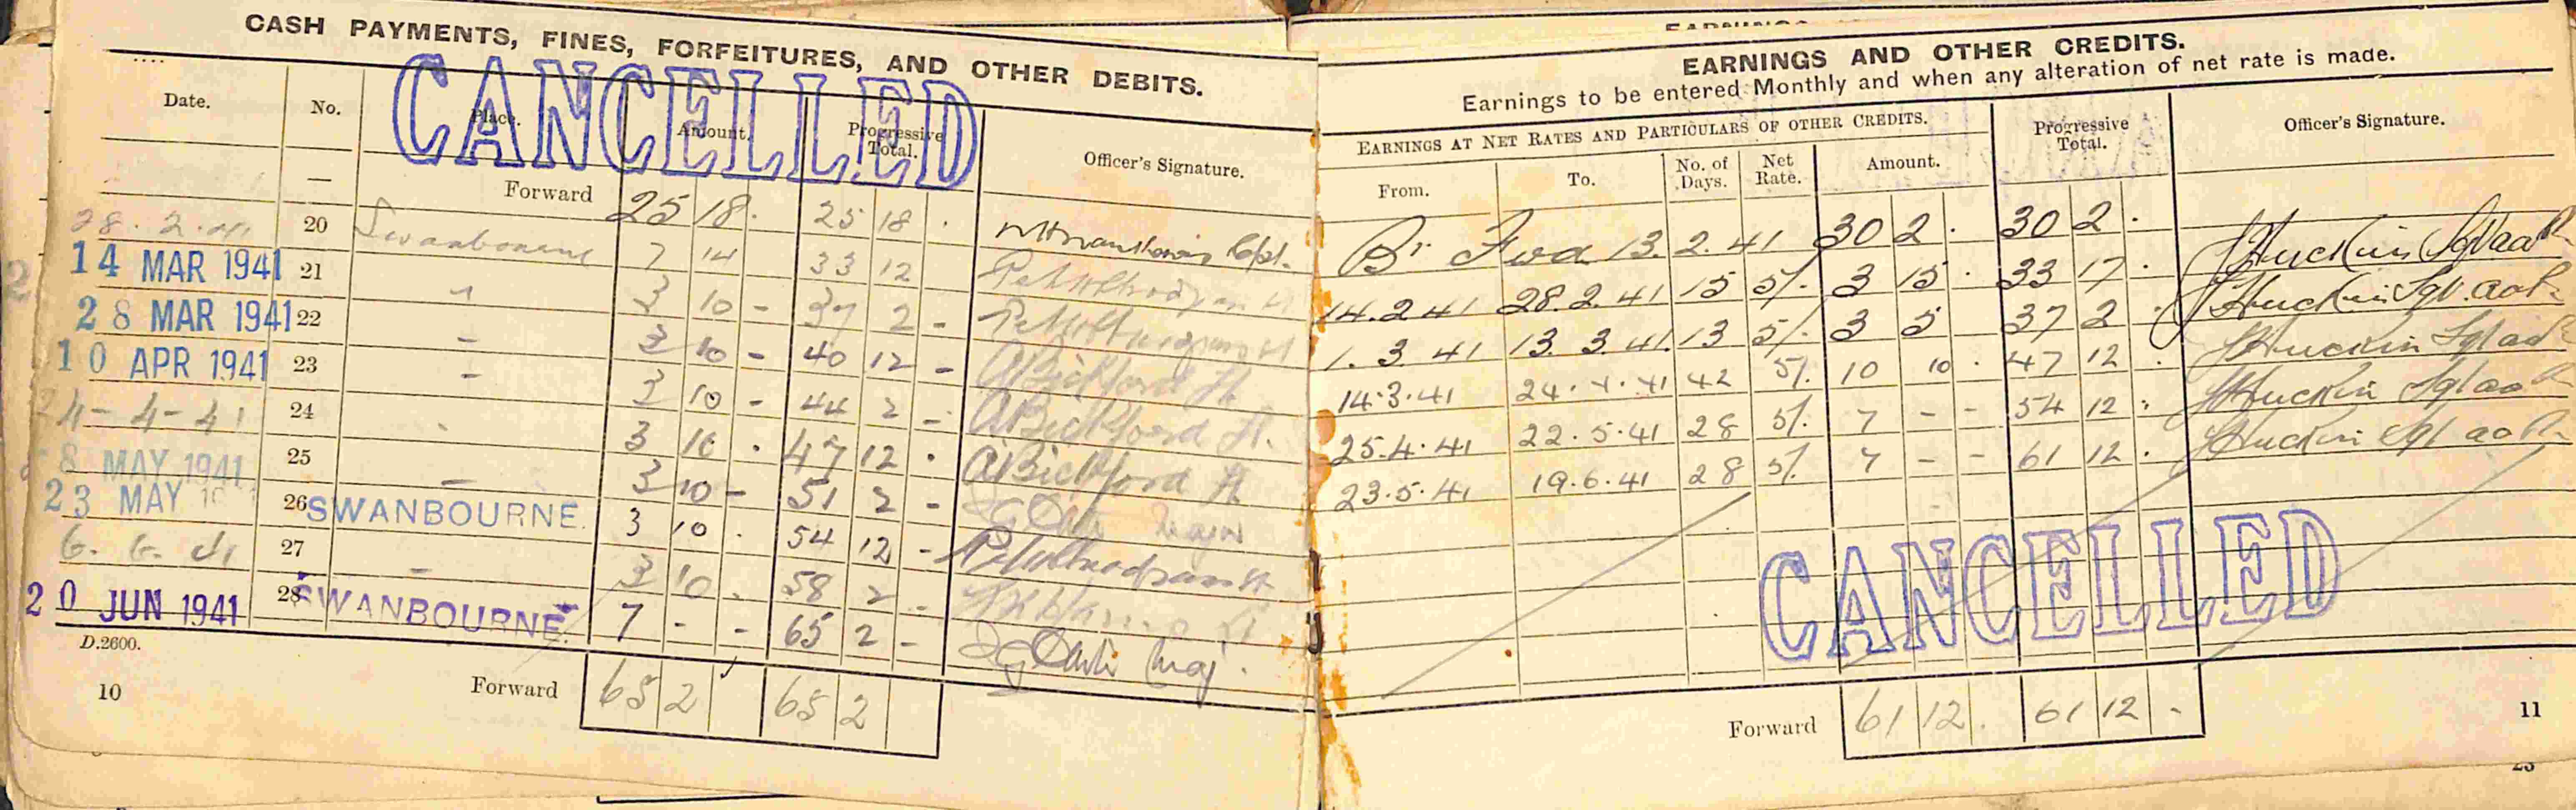 CASH PAYMENTS, FINES, FORFEITURES, AND OTHER DEBITS.
CANCELLED
Date. No. Place. Amount. Progressive Total. Officer's Signature.
— Forward 25 18 . 25 18 .
28. 2. 41 20 Swanbourne 7 14 33 12
14 MAR 1941 21 " 3 10 - 37 2 -
28 MAR 1941 22 - 3 10 - 40 12 -
10 APR 1941 23 - 3 10 - 44 2 - A Bickford Lt.
24-4-41 24 3 10 . 47 12 . A Bickford Lt.
8 MAY 1941 25 - 3 10 - 51 2 - A Bickford Lt
23 MAY 26 SWANBOURNE. 3 10 . 54 12 - Major
6. 6. 41 27 - 3 10 . 58 2 -
20 JUN 1941 28 SWANBOURNE. 7 - - 65 2 - Maj.
D.2600.
10 Forward 65 2 65 2
EARNINGS AND OTHER CREDITS.
Earnings to be entered Monthly and when any alteration of net rate is made.
EARNINGS AT NET RATES AND PARTICULARS OF OTHER CREDITS. Progressive Total. Officer's Signature.
From. To. No. of Days. Net Rate. Amount.
Bt Fwd 13. 2. 41 30 2 . 30 2 .
14.2 41 28.2.41 15 5/. 3 15 . 33 17 .
1. 3 41 13. 3. 41. 13 5/. 3 5 37 2 .
14.3.41 24.4.41 42 5/. 10 10 . 47 12 .
25.4.41 22.5.41 28 5/. 7 - - 54 12 .
23.5.41 19.6.41 28 5/. 7 - - 61 12 .
CANCELLED
Forward 61 12 . 61 12 - 11